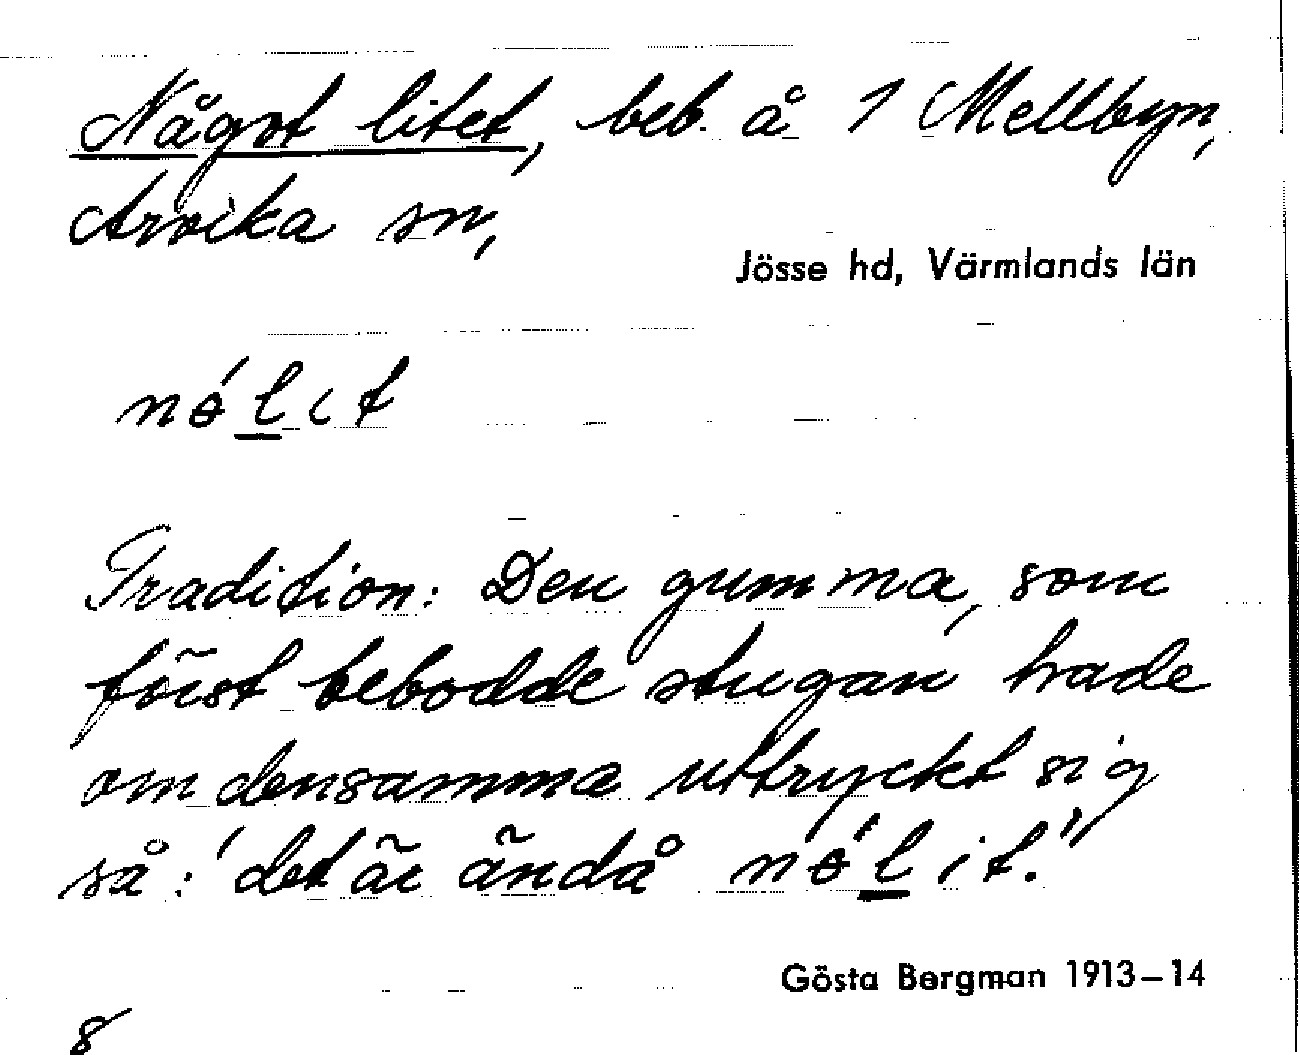 Något litet, beb. å 1 Mellbyn,
Arvika sn,
Jösse hd, Värmlands län
nɵ́lit
Tradition: Den gumma, som
först bebodde stugan hade
om densamma uttryckt sig
så: "det är ändå nɵ́lit."
Gösta Bergman 1913–14
8